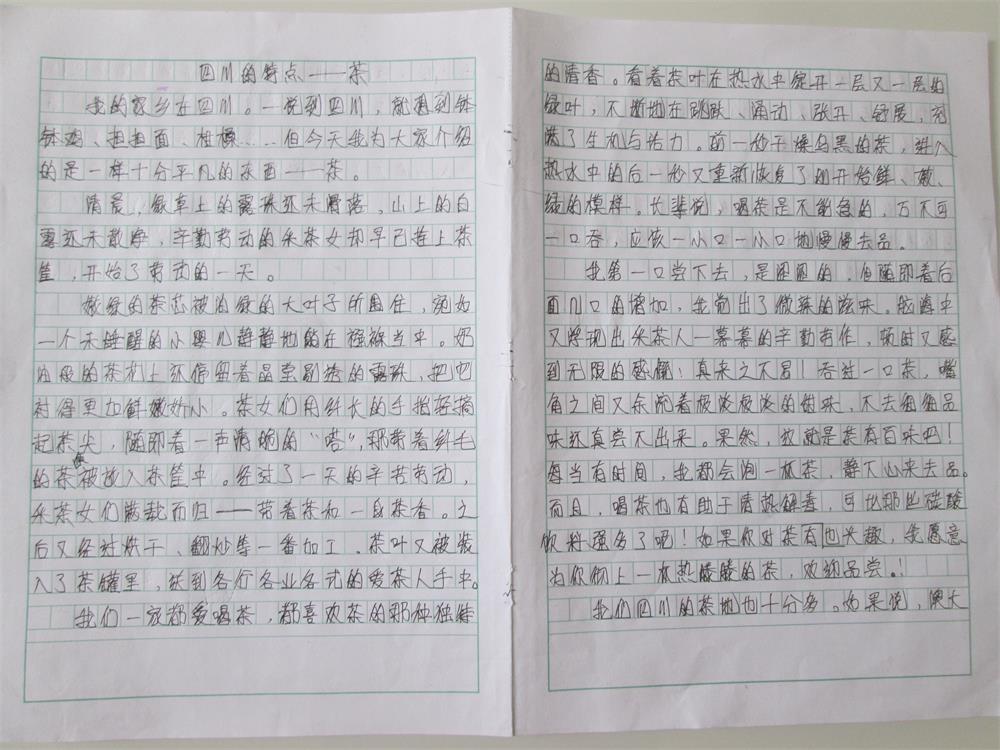 四川的特点——茶
我的家乡在四川。一说到四川，就想到钵
钵鸡、担担面、柑橘……但今天我为大家介绍
的是一样十分平凡的东西——茶。
清晨，绿草上的露珠还未滑落。山上的白
雾还未散净，辛勤劳动的采茶女却早已背上茶
筐，开始了劳动的一天。
嫩绿的茶芯被油绿的大叶子所围住，宛如
一个未睡醒的小婴儿静静地躺在襁褓当中。奶
油般的茶机上还停留着晶莹剔透的露珠，把它
衬得更加鲜嫩娇小。茶女们用纤长的手指轻摘
起茶尖，随即着一声清脆的“嗒”，那带着纤毛
的茶被放入茶筐中。经过了一天的辛苦劳动，
采茶女们满载而归——带着茶和一身茶香。之
后又经过烘干、翻炒等一番加工。茶叶又被装
入了茶罐里，送到各行各业各式的爱茶人手中。
我们一家都爱喝茶，都喜欢茶的那种独特
的清香。看着茶叶在热水中绽开一层又一层的
绿叶，不断地在跳跃、涌动、张开、舒展，充
满了生机与活力。前一秒干燥乌黑的茶，进入
热水中的后一秒又重新恢复了刚开始鲜、嫩、
绿的模样。长辈说，喝茶是不能急的，万不可
一口吞，应该一小口一小口地慢慢去品。
我第一口尝下去，是涩涩的，但随即着后
面几口的增加，我觉出了微殊的滋味。脑海中
又浮现出采茶人一幕幕的辛勤劳作，顿时又感
到无限的感慨！真来之不易！吞进一口茶，嘴
角之间又余泥着极淡极淡的甜味，不去细细品
味还真尝不出来。果然，这就是茶有百味吧！
每当有时间，我都会泡一杯茶，静下心来去品。
而且，喝茶也有助于清热解毒，可比那些碳酸
饮料强多了吧！如果你对茶有也兴趣，我愿意
为你彻上一杯热腾腾的茶，欢纳品尝。！
我们四川的茶地也十分多。如果说，澳大